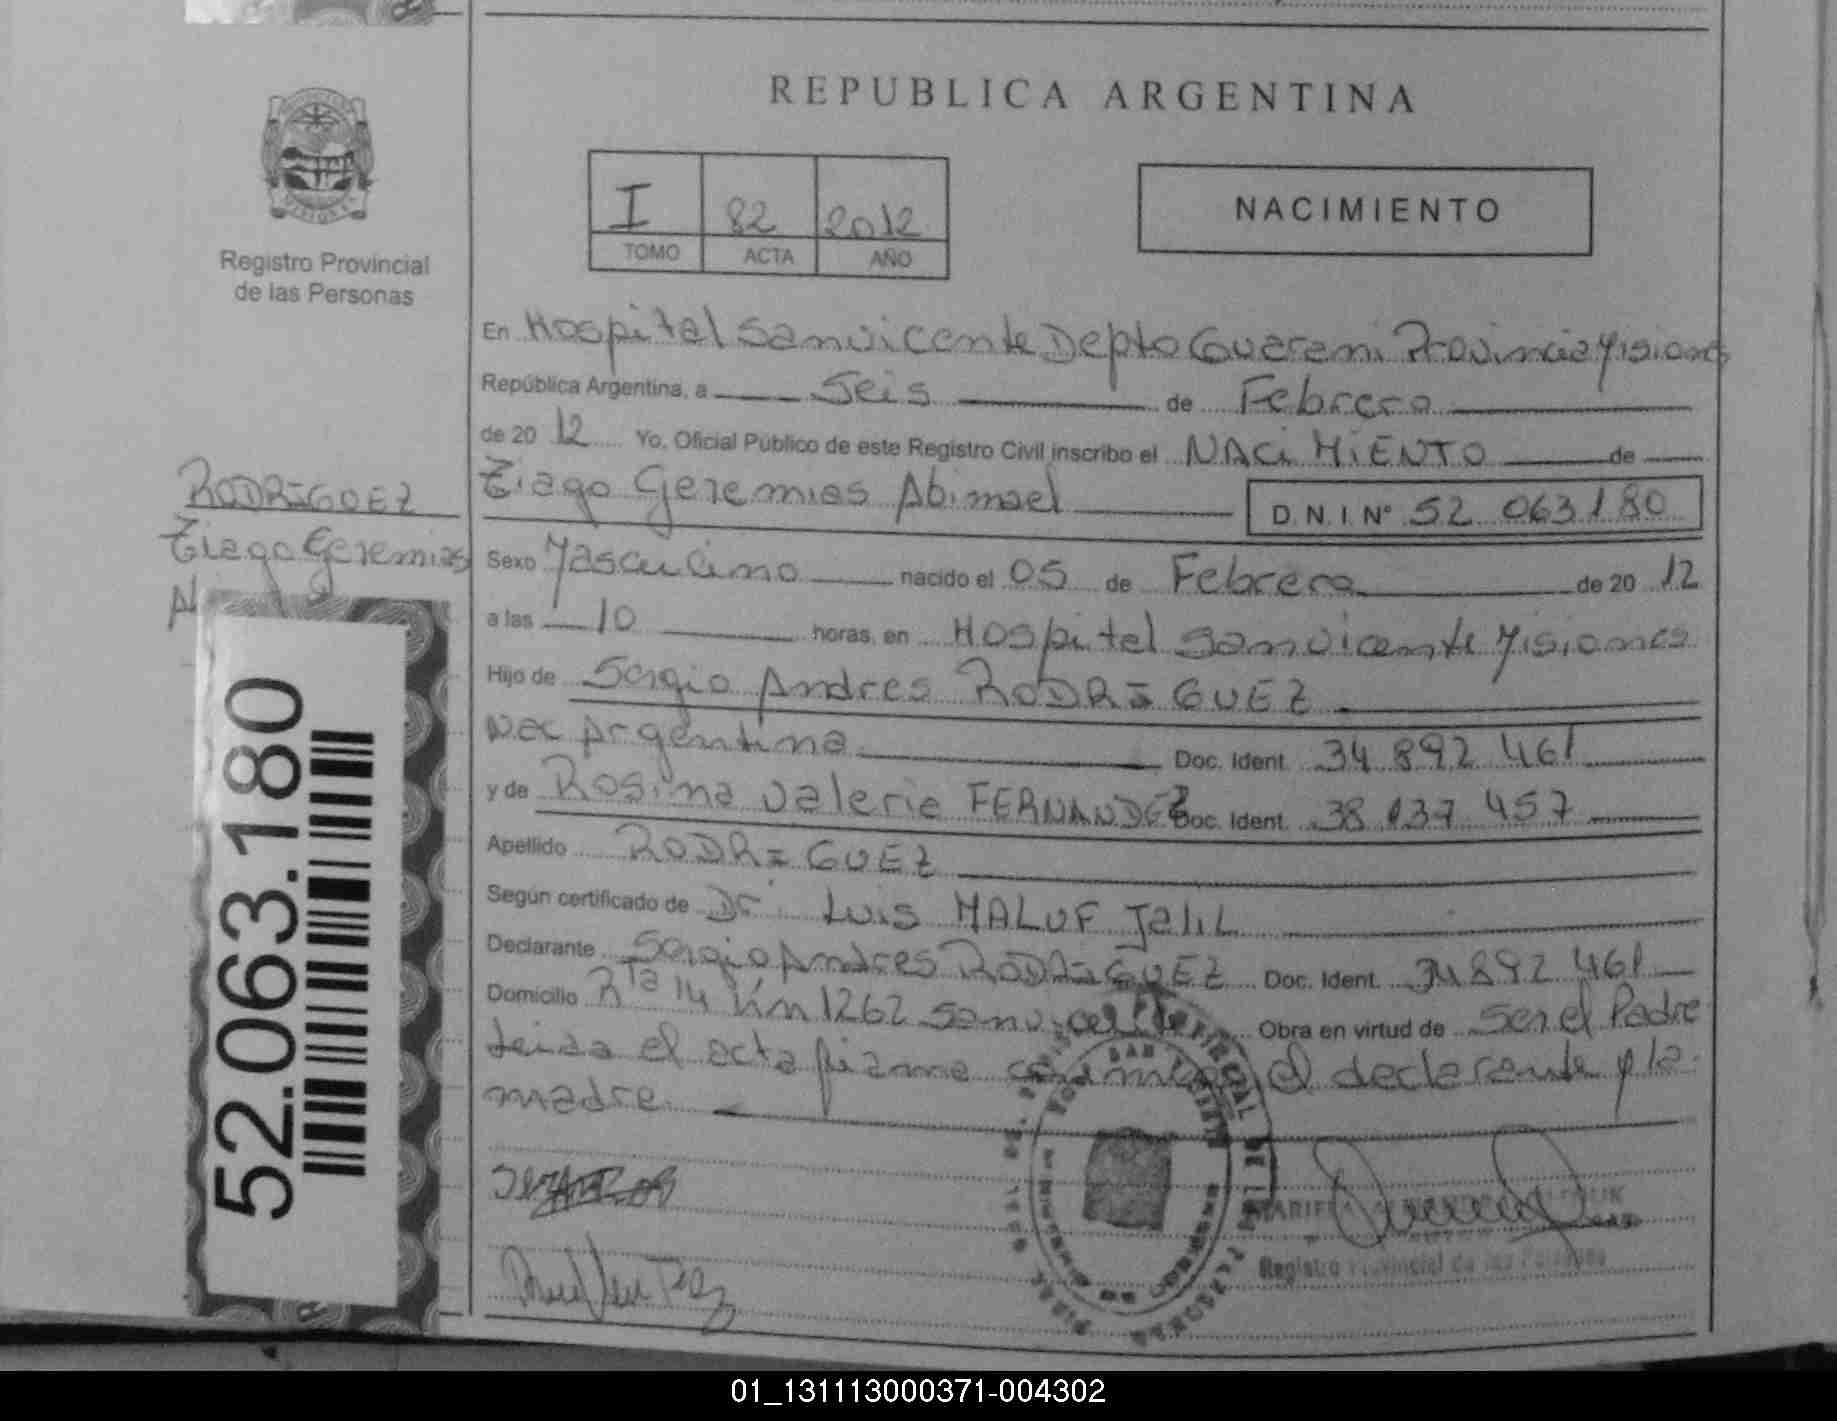 REPUBLICA ARGENTINA
I 82 2012
TOMO ACTA AÑO
NACIMIENTO
Registro Provincial
de las Personas
En Hospital San vicente Depto Guarani Provincia Misiones
República Argentina, a Seis de Febrero
de 20 12 Yo, Oficial Público de este Registro Civil inscribo el NACIMIENTO de
Tiago Geremias Abimael D.N.I. Nº 52 063180
RODRIGUEZ
Tiago Geremias
Sexo Masculino nacido el 05 de Febrero de 20 12
a las 10 horas, en Hospital San vicente Misiones
Hijo de Sergio Andres RODRIGUEZ
Nac Argentina Doc. Ident. 34 892 461
y de Rosina Valeria FERNANDEZ Doc. Ident. 38 137 457
Apellido RODRIGUEZ
Según certificado de Dr. Luis MALUF Jalil
Declarante Sergio Andres RODRIGUEZ Doc. Ident. 34 892 461
Domicilio Rta 14 km 1262 San vicente Obra en virtud de Ser el Padre
leida el acta firma conmigo el declarante y la
madre
52.063.180
Registro Provincial de las Personas
01_131113000371-004302